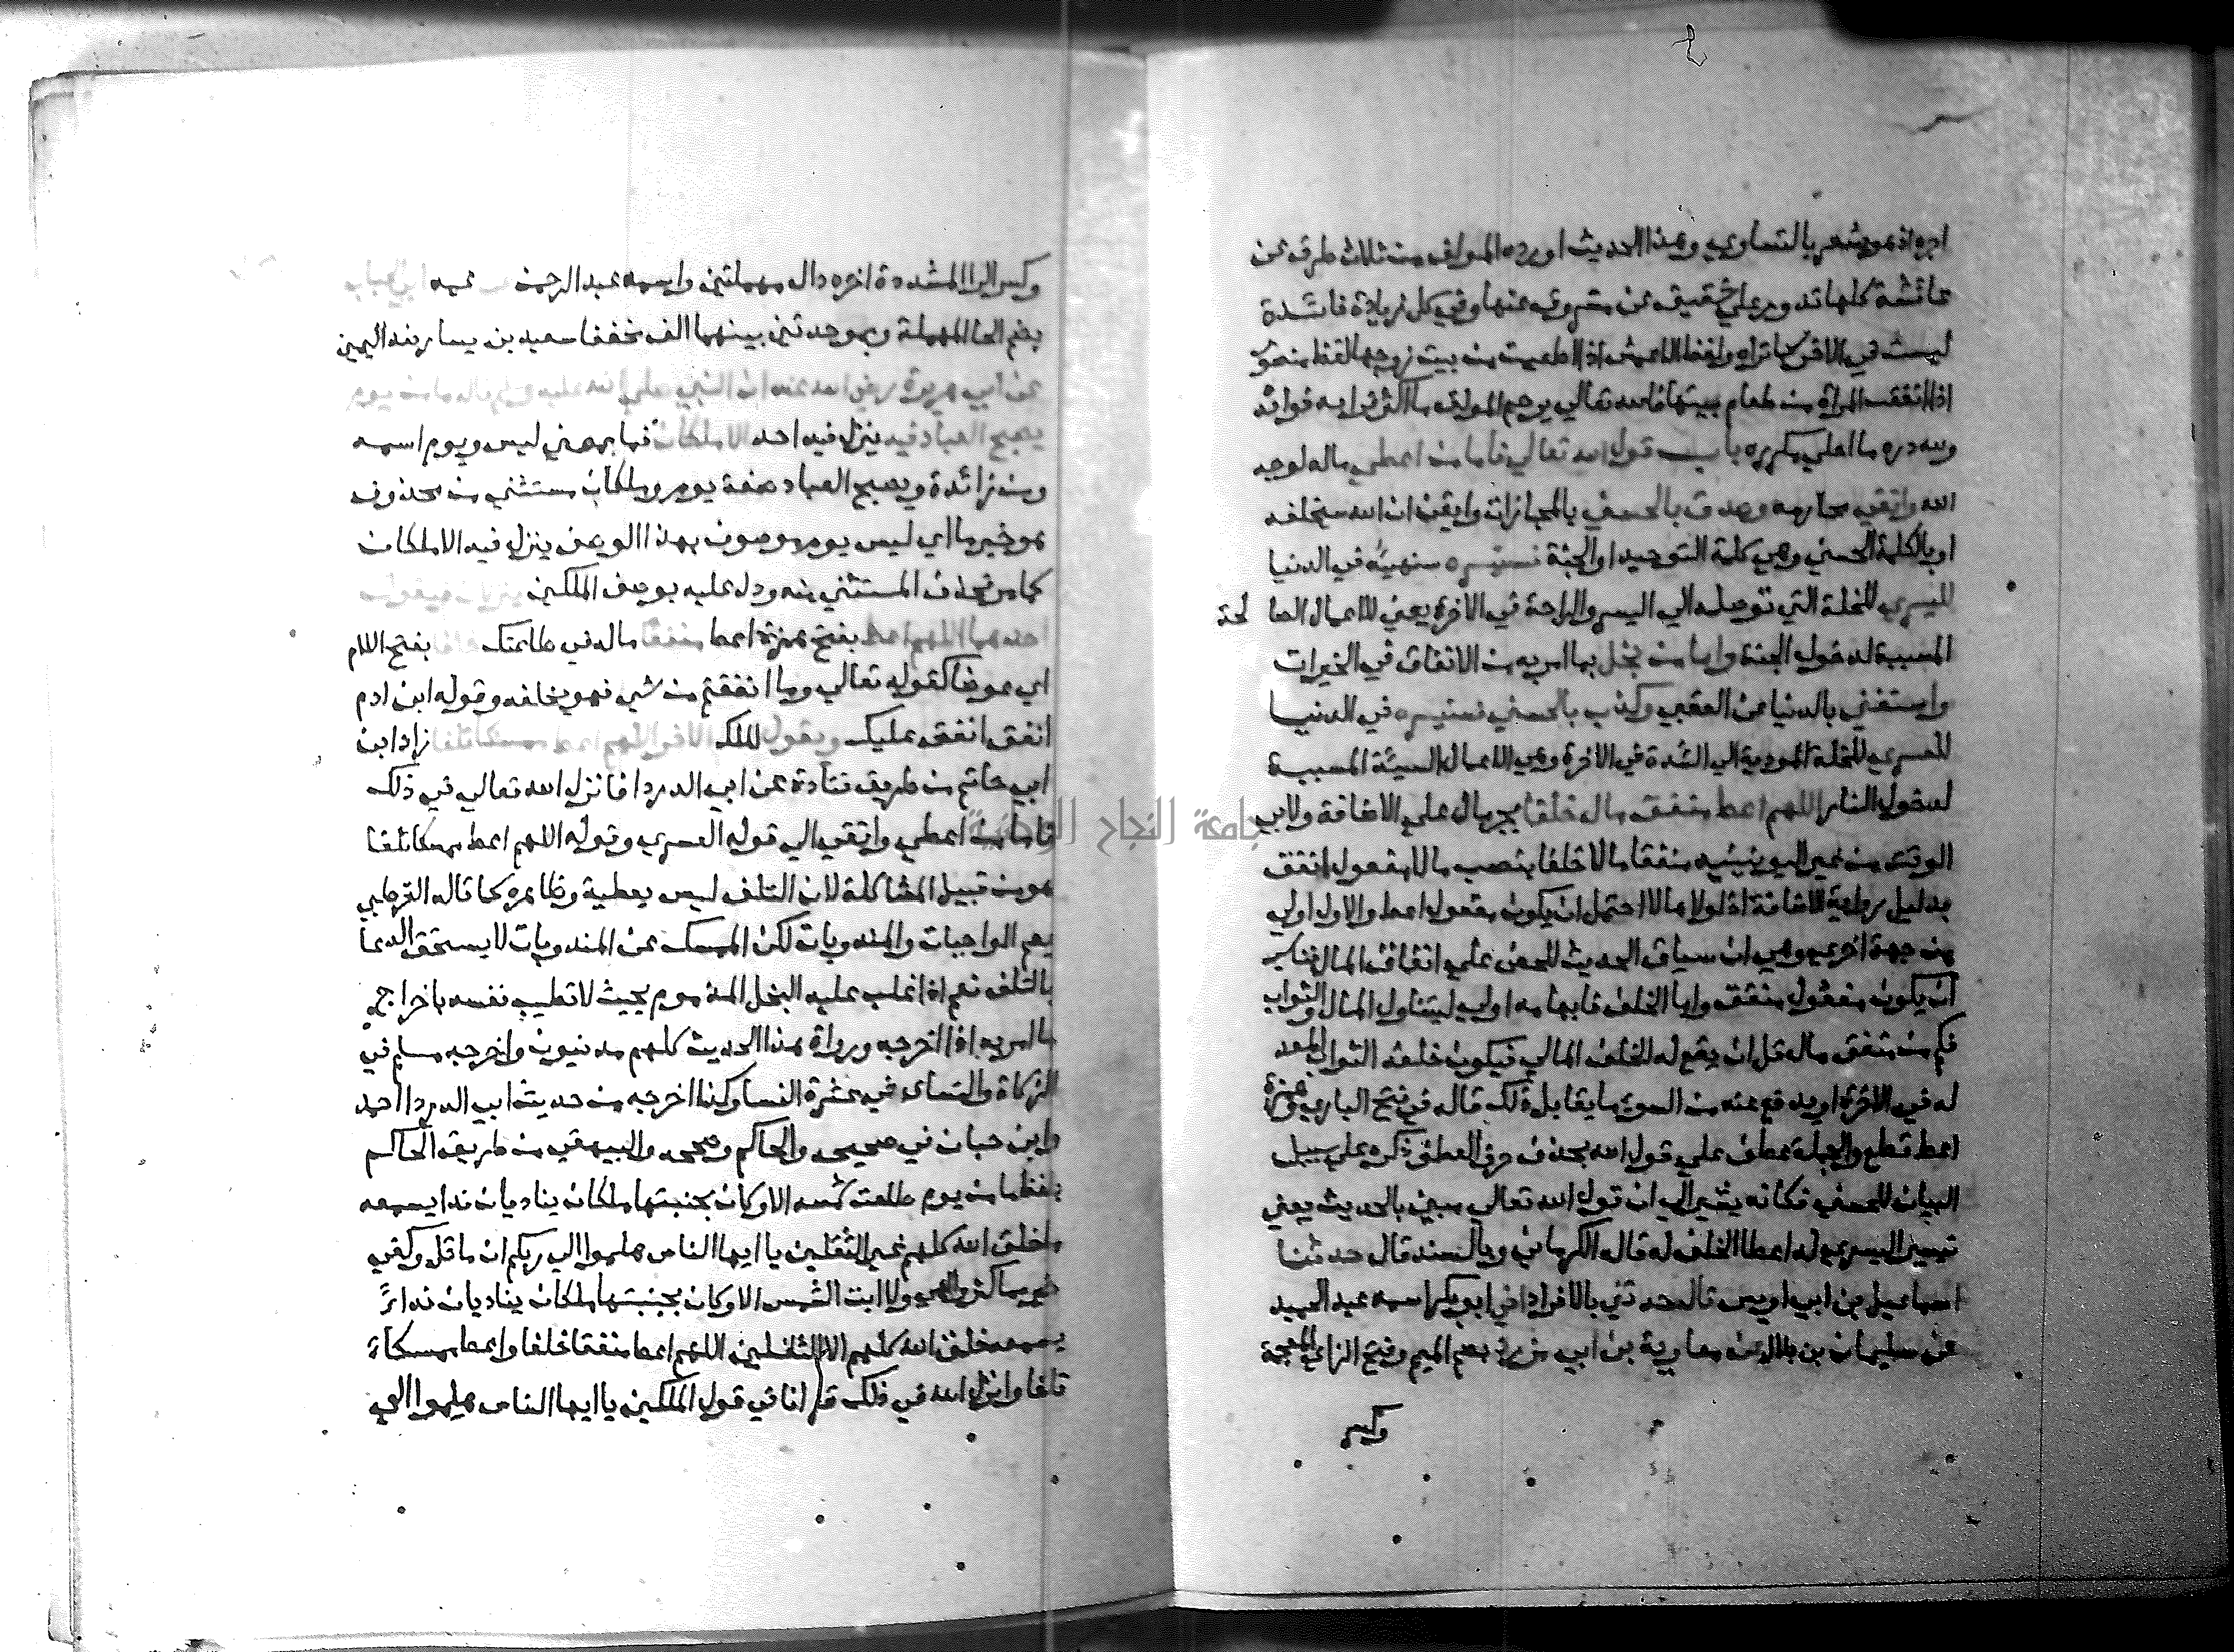 اجره اذ هو يشعر بالتساوي وهذا الحديث اورده المولف من ثلاث طرق عن
عائشة كلها تدور علي شقيق عن مسروق عنها وفي كل زيادة فائدة
ليست في الاخر كما تراه ولفظ الاعمش اذا اطعمت من بيت زوجها لفظ منصور
اذا انفقت المراة من طعام بيتها فالله تعالي يرحم المولف ما اكثر فرايد فوائد
ولله دره ما احلي مكرره باب قول الله تعالي فاما من اعطي ماله لوجه
الله واتقي محارمه وصدق بالحسني بالمجازات وايقن ان الله سيخلفه
او بالكلمة الحسني وهي كلمة التوحيد او الجنة فسنيسره سنهيئه في الدنيا
لليسري للخلة التي توصله الي اليسر والراحة في الاخرة يعني للاعمال الصا لحة
المسببة لدخول الجنة واما من بخل بما امر به من الانفاق في الخيرات
واستغني بالدنيا عن العقبي وكذب بالحسني فسنيسره في الدنيا
للعسري للخلة المودية الي الشدة في الاخرة وهي الاعمال السيئة المسببة
لدخول النار اللهم اعط منفق مال خلفا بجر مال علي الاضافة ولابي
الوقت من غير اليونينيه منفقا مالا خلفا بنصب مالا مفعول انفق
بدليل رواية الاضافة اذ لولاها لاحتمل ان يكون مفعول اعط والاول اولي
من جهة اخري وهي ان سياق الحديث للحض علي انفاق المال فناسب
ان يكون مفعول منفق واما الخلف فابهامه اولي ليتناول المال والثواب
فكم من منفق مال قل ان يقع له الخلف المالي فيكون خلفه الثواب المعد
له في الاخرة او يدفع عنه من السوء ما يقابل ذلك قاله في فتح الباري وهمزة
اعط قطع والجملة عطف علي قول الله بحذف حرف العطف ذكره علي سبيل
البيان للحسني فكانه يشير الي ان قول الله تعالي مبين بالحديث يعني
تيسير اليسري له اعطا الخلف له قاله الكرماني وبالسند قال حدثنا
اسماعيل بن ابي اويس قال حدثني بالافراد اخي ابو بكر اسمه عبد الحميد
عن سليمان بن بلال عن معاوية بن ابي مزرد بضم الميم وفتح الزاي المعجمة
وكسر
وكسر الرا المشددة اخره دال مهملتين واسمه عبد الرحمن عن عمه ابي الحباب
بضم الحا المهملة وبموحدتين بينهما الف مخففا سعيد بن يسار ضد اليمين
عن ابي هريرة رضي الله عنه ان النبي صلي الله عليه وسلم قال ما من يوم
يصبح العباد فيه ينزل فيه احد الا ملكان فما بمعني ليس ويوم اسمه
ومن زائدة ويصبح العباد صفة يوم وملكان مستثني من محذوف
هو خبر ما اي ليس يوم موصوف بهذا الوصف ينزل فيه الا ملكان
كما مر فحذف المستثني منه ودل عليه بوصف الملكين ينزلان فيقول
احدهما اللهم اعط بفتح همزة اعط منفقا ماله في طاعتك خلفا بفتح اللام
اي عوضا كقوله تعالي وما انفقتم من شي فهو يخلفه وقوله ابن ادم
انفق انفق عليك ويقول للملك الاخر اللهم اعط ممسكا تلفا زاد ابن
ابي حاتم من طريق قتادة عن ابي الدردا فانزل الله تعالي في ذلك
فاما من اعطي واتقي الي قوله العسري وقوله اللهم اعط ممسكا تلفا
هو من قبيل المشاكلة لان التلف ليس بعطية وظاهره كما قاله القرطبي
يعم الواجبات والمندوبات لكن الممسك عن المندوبات لا يستحق الدعا
بالتلف نعم اذا غلب عليه البخل المذموم بحيث لا تطيب نفسه باخراج
ما امر به اذا اخرجه ورواة هذا الحديث كلهم مدنيون واخرجه مسلم في
الزكاة والنساي في عشرة النسا وكذا اخرجه من حديث ابي الدردا احمد
وابن حبان في صحيحه والحاكم وصححه والبيهقي من طريق الحاكم
بلفظ ما من يوم طلعت شمسه الا وكان بجنبتيها ملكان يناديان ندا يسمعه
ما خلق الله كلهم غير الثقلين يا ايها الناس هلموا الي ربكم ان ما قل وكفي
خير مما كثر والهي ولا ابت الشمس الا وكان بجنبتيها ملكان يناديان نداءً
يسمعه خلق الله كلهم الا الثقلين اللهم اعط منفقا خلفا واعط ممسكا
تلفا وانزل الله في ذلك قرانا في قول الملكين يا ايها الناس هلموا الي
جامعة النجاح الوطنية